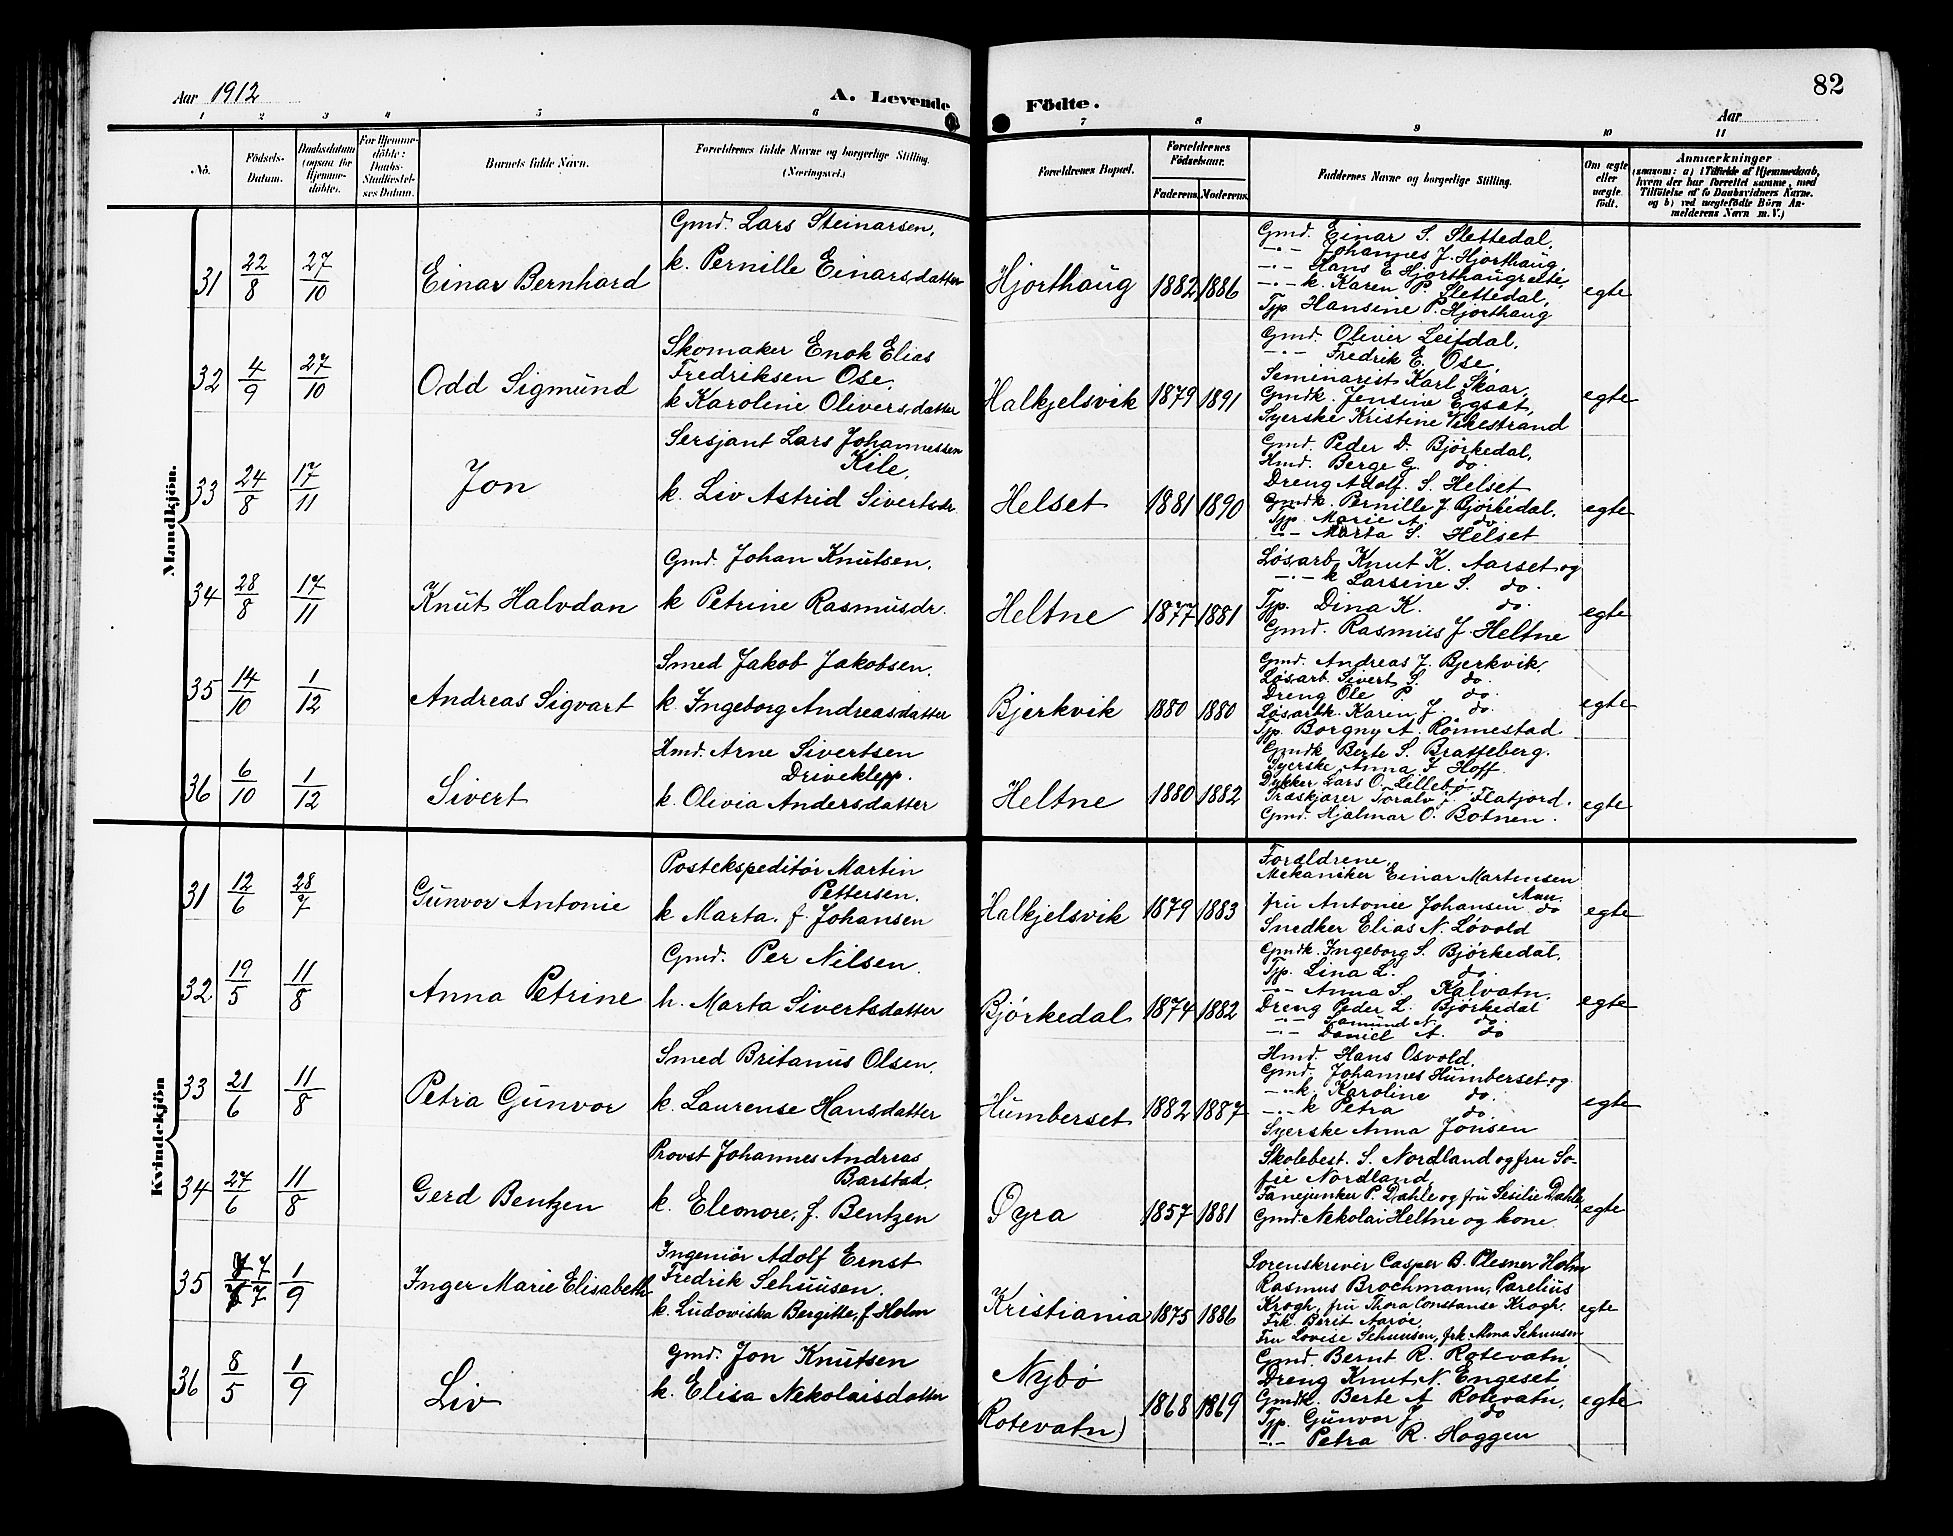 82
Aar 1912
A. Levende Födte.
Aar
1 2 3 4 5 6 7 8 9 10 11
No.
Födsels-Datum.
Daabsdatum (ogsaa for Hjemme-döbte).
For Hjemme-döbte: Daabs-Stadfæstel-ses Datum.
Barnets fulde Navn.
Forældrenes fulde Navne og borgerlige Stilling. (Næringsvei.)
Forældrenes Bopæl.
Forældrenes Födselsaar.
Faderens. Moderens.
Faddernes Navne og borgerlige Stilling.
Om ægte eller uægte födt.
Anmærkninger
(saasom: a) i Tilfælde af Hjemmedaab, hvem der har forrettet samme, med Tilföielse af to Daabsvidners Navne. og b) ved uægtefödte Börn An-melderens Navn m. V.)
Mandkjön.
31 22/8 27/10 Einar Bernhard
Gmd. Lars Steinarsen,
k. Pernille Einarsdatter
Hjorthaug 1882 1886
Gmd. Einar S. Slettedal,
-"- Johannes J. Hjorthaug
-"- Hans E Hjorthaugrelte,
-"- k. Karen P. Slettedal,
Tjp Hansine P. Hjorthaug
egte
32 4/9 27/10 Odd Sigmund
Skomaker Enok Elias
Fredriksen Ose,
k Karoline Oliversdatter
Halkjelsvik 1879 1891
Gmd. Oliver Leifdal,
-"- Fredrik E. Ose,
Seminarist Karl Skaar,
Gmdk. Jensine Egsæt,
Syerske Kristine Vikestrand
egte
33 24/8 17/11 Jon
Sersjant Lars Johannessen
Kile,
k. Liv Astrid Sivertsdr.
Helset 1881 1890
Gmd. Peder D. Bjørkedal,
Hmd. Berge G. do.
Dreng Adolf. S. Helset
Gmdk. Pernille J Bjørkedal.
Tjp. Marie A. do.
-"- Marta S. Helset
egte
34 28/8 17/11 Knut Halvdan
Gmd. Johan Knutsen.
k Petrine Rasmusdr.
Heltne 1877 1881
Løsarb Knut K. Aarset og
-"- k Larsine S. do.
Tjp. Dina K. do.
Gmd. Rasmus J. Heltne
egte
35 14/10 1/12 Andreas Sigvart
Smed Jakob Jakobsen.
k. Ingeborg Andreasdatter
Bjerkvik 1880 1880
Gmd. Andreas J. Bjerkvik.
Løsarb. Sivert S. do.
Dreng Ole P. do.
Løsarbk. Karen J. do.
Tjp. Borgny A. Rønnestad
egte
36 6/10 1/12 Sivert
Hmd. Arne Sivertsen
Driveklepp.
k. Olivia Andersdatter
Heltne 1880 1882
Gmdk Berte S. Bratteberg.
Syerske Anna I Hoff.
Dykker Lars O. Lillebø
Træskjærer Toralv J. Flatjord.
Gmd. Hjalmar O. Botnen.
egte
Kvindekjön
31 12/6 28/7 Gunvor Antonie
Postekspeditør Martin
Pettersen.
k Marta. f. Johansen
Halkjelsvik 1879 1883
Forældrene,
Mekaniker Einar Martinsen
fru Antonie Johansen do
Snedker Elias N. Løvold
egte
32 19/5 11/8 Anna Petrine
Gmd. Per Nilsen.
h. Marta Sivertsdatter
Bjørkedal 1874 1882
Gmdk. Ingeborg S. Bjørkedal,
Tjp. Lina L. do.
-"- Anna S. Kalvatn.
Dreng Peder L. Bjørkedal
-"- Samund N. do.
-"- Daniel A. do
egte
33 21/6 11/8 Petra Gunvor
Smed Britanus Olsen.
k. Laurense Hansdatter
Humberset 1882 1887
Hmd. Hans Osvold,
Gmd. Johannes Humberset og
-"- k. Karoline do.
-"- k Petra do
Syerske Anna Jonsen
egte
34 27/6 11/8 Gerd Bentzen
Provst Johannes Andreas
Barstad.
k. Eleonore, f. Bentzen
Øyra 1857 1881
Skolebest. S. Nordland og fru So-
fie Nordland,
Fanejunker P. Dahle og fru Sesilie Dahle,
Gmd. Nekolai Heltne og kone.
egte
35 7/7 1/9 Inger Marie Elisabeth
Ingeniør Adolf Ernst
Fredrik Schuusen.
k. Ludoviska Bergitte, f Holm
Kristiania 1875 1886
Sorenskriver Casper B. Plesner Holm
Rasmus Brochmann, Parelius
Krogh, fru Thora Constanse Krogh.
Frk. Berit Aarøe,
Fru Lovise Schuusen, frk. Alma Schuusen
egte
36 8/5 1/9 Liv
Gmd. Jon Knutsen
k. Elisa Nekolaisdatter
Nybø
(Rotevatn) 1868 1869
Gmd. Bernt R. Rotevatn,
Dreng Knut N. Engeset
Gmdk. Berte A Rotevatn,
Tjp. Gunvor J. do
-"- Petra R. Hoggen
egte